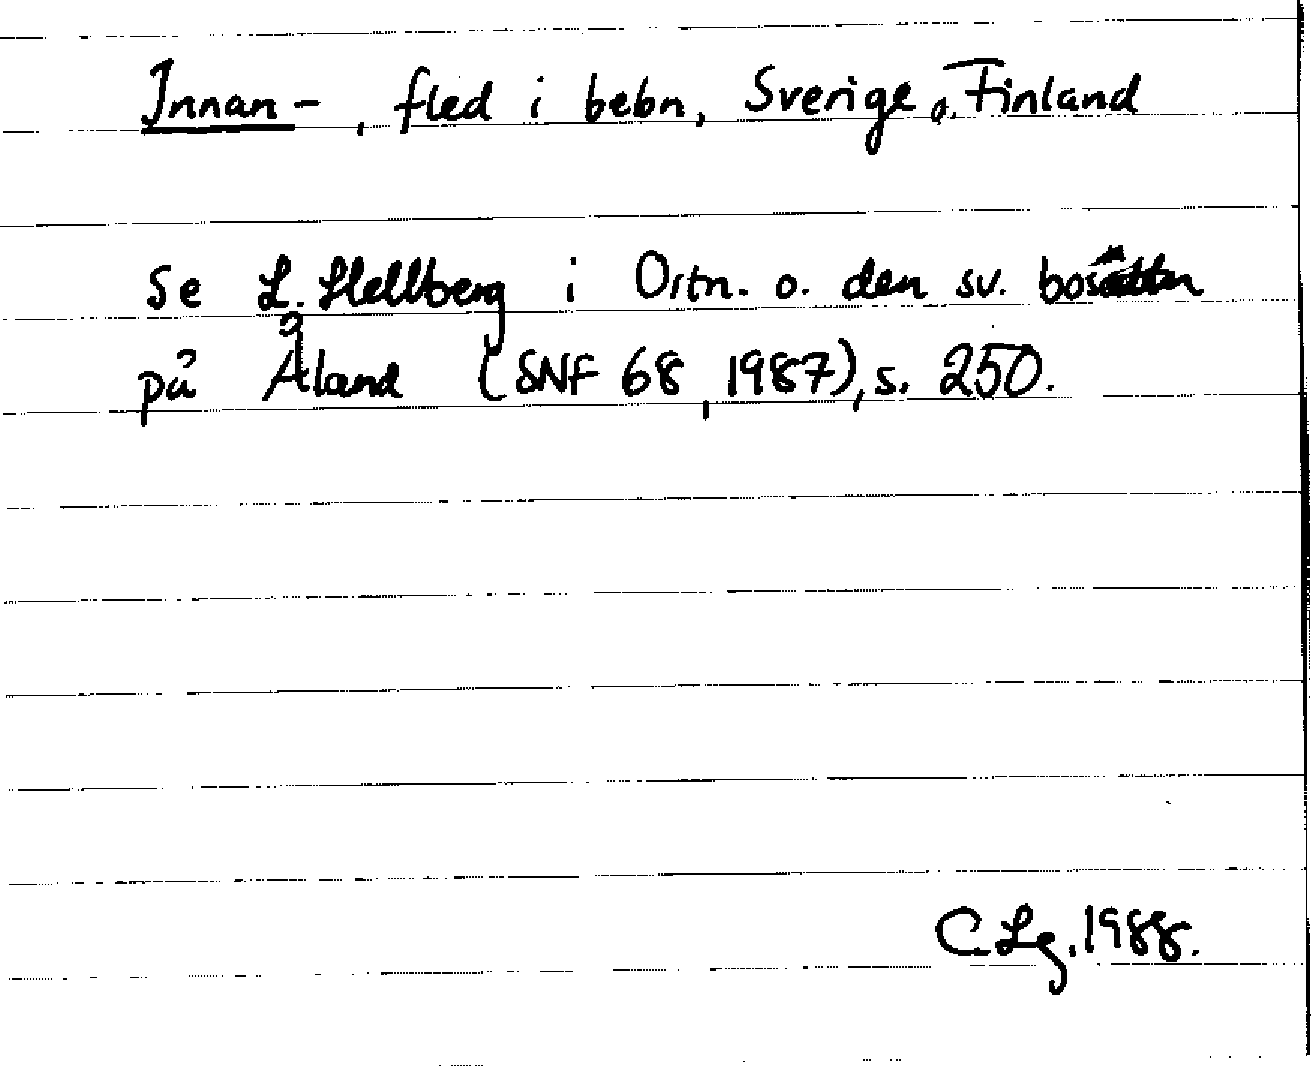 Innan-, fled i bebn, Sverige o. Finland
Se L. Hellberg i Ortn. o. den sv. bosättn
på Åland (SNF 68, 1987), s. 250.
C. Lg. 1988.